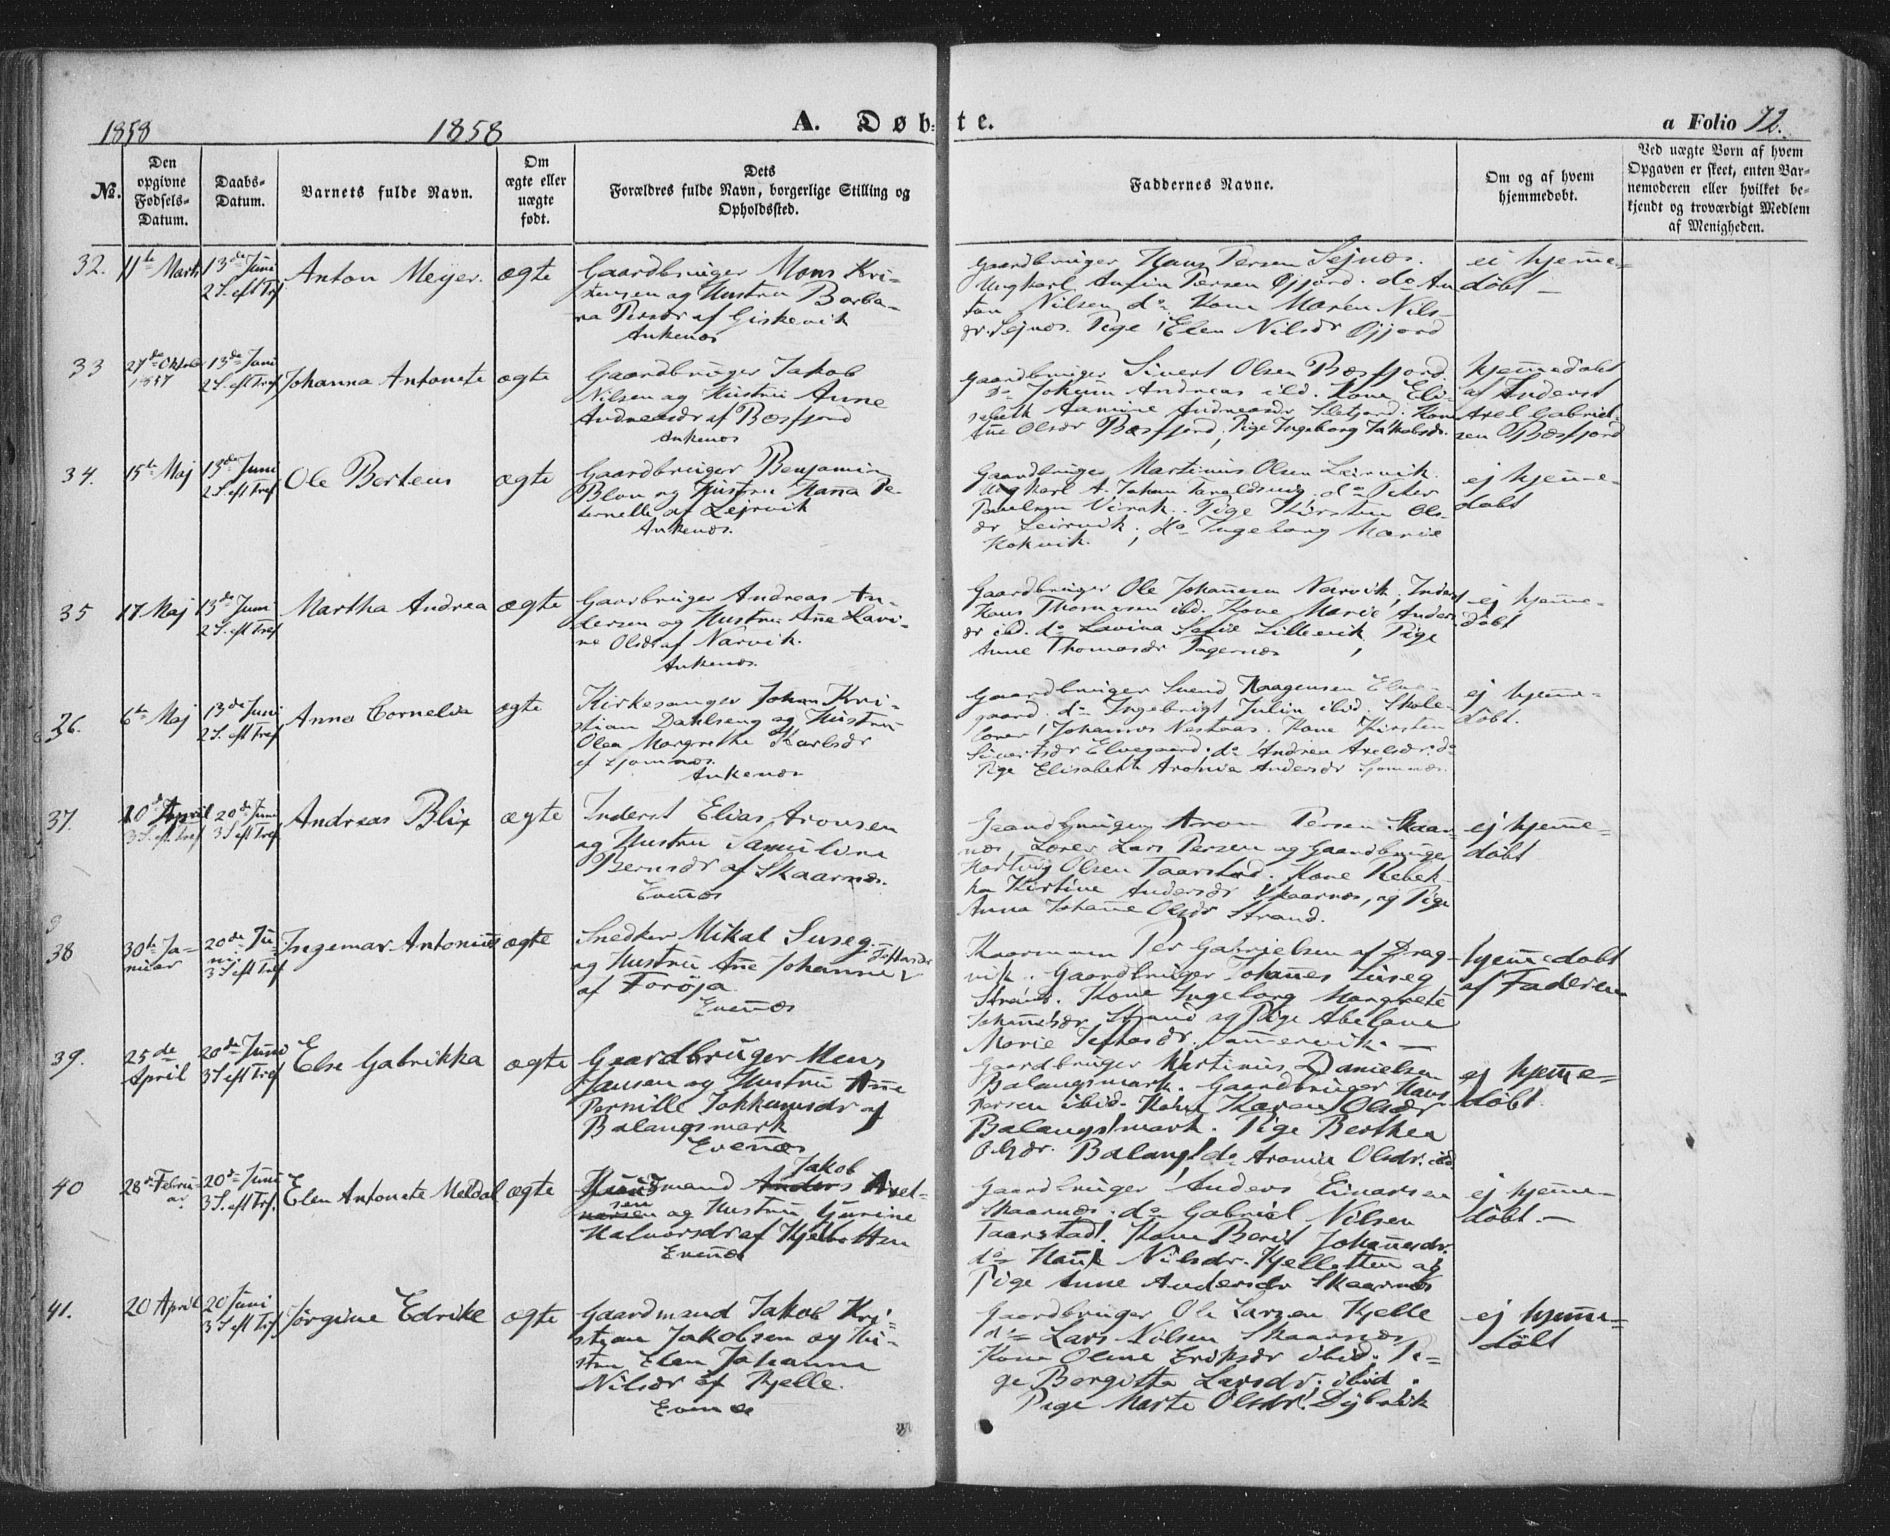 1858 1858 A. Døb- te. a Folio 72.
№.
Den opgivne Fødsels-Datum.
Daabs-Datum.
Barnets fulde Navn.
Om ægte eller uægte født.
Dets Forældres fulde Navn, borgerlige Stilling og Opholdssted.
Faddernes Navne.
Om og af hvem hjemmedøbt.
Ved uægte Børn af hvem Opgaven er skeet, enten Barnemoderen eller hvilket bekjendt og troværdigt Medlem af Menigheden.
32. 11te Marts 13de Juni 2 S. eft Tref Anton Meyer. ægte
Gaardbruger Mons Kri-
stensen og Hustru Barba-
ra Persdr af Giskevik
Ankenæs
Gaardbruger Hans Persen Sejnæs.
Ungkarl Persen Øjjord. do An
ton Nilsen do Kone Maren Nils-
dr Sejnæs. Pige Elen Nilsdr Øjjord
ei hjeme-
døbt —
33 27de Oktober 1857 13de Juni 2 S. eft Tref Johanna Antonete ægte
Gaardbruger Jakob
Nilsen og Hustru Anne
Andreasdr af Bæsfjord
Ankenæs
Gaardbruger Sivert Olsen Bæsfjord
do Johan Andreas ibid. Kone Eli-
sabeth Andreasdr Kone
Ane Olsdr Bæsfjord, Pige Ingeborg Jakobsdr
hjemedøbt
af Inderst
Axel Gabriel-
sen Bæsfjord
34. 15te Maj 13de Juni 2 S. eft Tref Ole Berteus ægte
Gaardbruger Benjamin
og Hustru Hana Pe-
ternelle af Lejrvik
Ankenæs.
Gaardbruger Martinus Olsen Leirvik.
Ungkarl A. Johan do Peter
Paulsen Pige Kirsten Ols-
dr Leirvik, do Ingeborg Marie
ej hjeme-
døbt
35 17 Maj 13de Juni 2 S. eft Tref Martha Andrea ægte
Gaarbruger Andreas An-
dersen og Hustru Ane Lavi-
ne Olsdr af Narvik.
Ankenæs.
Gaardbruger Ole Johannesen Narvik, Inderst
Hans Thomasen ibd. Kone Marie Anders-
dr ibd. do Lavina Sofie Lillevik, Pige
Anne Thomasdr Fagernæs
ej hjeme-
døbt
36. 6te Maj 13de Juni 2 S. eft Tref Anna Cornelia ægte
Kirkesanger Johan Kri-
stian Dahlseng og Hustru
Olea Margrethe Karlsdr
af
Ankenæs
Gaardbruger Svend Haagensen Elve-
gaard. do Ingebrigt Julin ibid. Skole-
lærer Johannes Kone Kirsten
Sivertsdr Elvegaard. do Andrea Axelsdr. do
Pige Elisabeth Aronia Andersdr
ej hjeme-
døbt.
37. 10de April 3 S. eft Tref 20de Juni 3 S eft Tref Andreas Blix ægte
Inderst Elias Aronsen
og Hustru Samuline
Bernsdr af Skaarnæs.
Evenæs
Gaardbruger Aron Persen Skaar-
næs, Lærer Lars Persen og Gaardbruger
Hartvig Olsen Taarstad. Kone Rebek-
ka Kirtine Andersdr Skaarnæs, og Pige
Anna Johane Olsdr Strand.
ej hjeme-
døbt
38 30te Ja-
nuar 20de Ju-
ni 3 S eft Tref Ingemar Antonius ægte
Snedker Mikal Suseg
og Hustru Ane Johanne
af Forøja
Evenæs
Per Gabrielsen af Dreg-
vik. Gaardbruger Johannes
Strand. Kone Ingeborg Margrete
Johannesdr Strand og Pige Abelone
Marie
hjemedøbt
af Faderen
39. 25de April 20de Juni 3 S eft Tref Else Gabrikka ægte
Gaardbruger Mens
Jansen og Hustru Ane
Pernille Johhansdr af
Balangsmark
Evenæs
Gaardbruger Martinus Danielsen
Balangsmark. Gaardbruger Hans
Persen ibid. Kone Karen Olsdr
Balangsmark. Pige Berthea
Olsdr. Balang! do Aronie Olsdr. ibd
ej hjeme-
døbt.
40 28de Febru-
ar. 20de Juni 3 S. eft Trf. Elen Antonete Meldal ægte
Jakob
Huusmand Anders Axel-
sen
og Hustru Gurine
Halvorsdr af Kjelbotten
Evenæs
Gaardbruger Anders Einarsen
Skaarnæs. do Gabriel Nilsen
Taarstad. Kone Berit Johannesdr.
do Nilsdr. Kjelbotten og
Pige Anne Andersdr Skaarnæs
ej hjeme-
døbt. —
41. 20 April 20 Juni 3 S eft Trf Jørgine Edrike ægte
Gaardmand Jakob Kri-
stian Jakobsen og Hu-
stru Elen Johanna
Nilsdr af Kjelle.
Evenæs
Gaardbruger Ole Larsen Kjelle
do Lars Nilsen Skaarnæs
Kone Oline Eriksdr ibid. Pi-
ge Bergitte Larsdr. ibid.
Pige Marte Olsdr. Dybvik
ej hjeme-
døbt